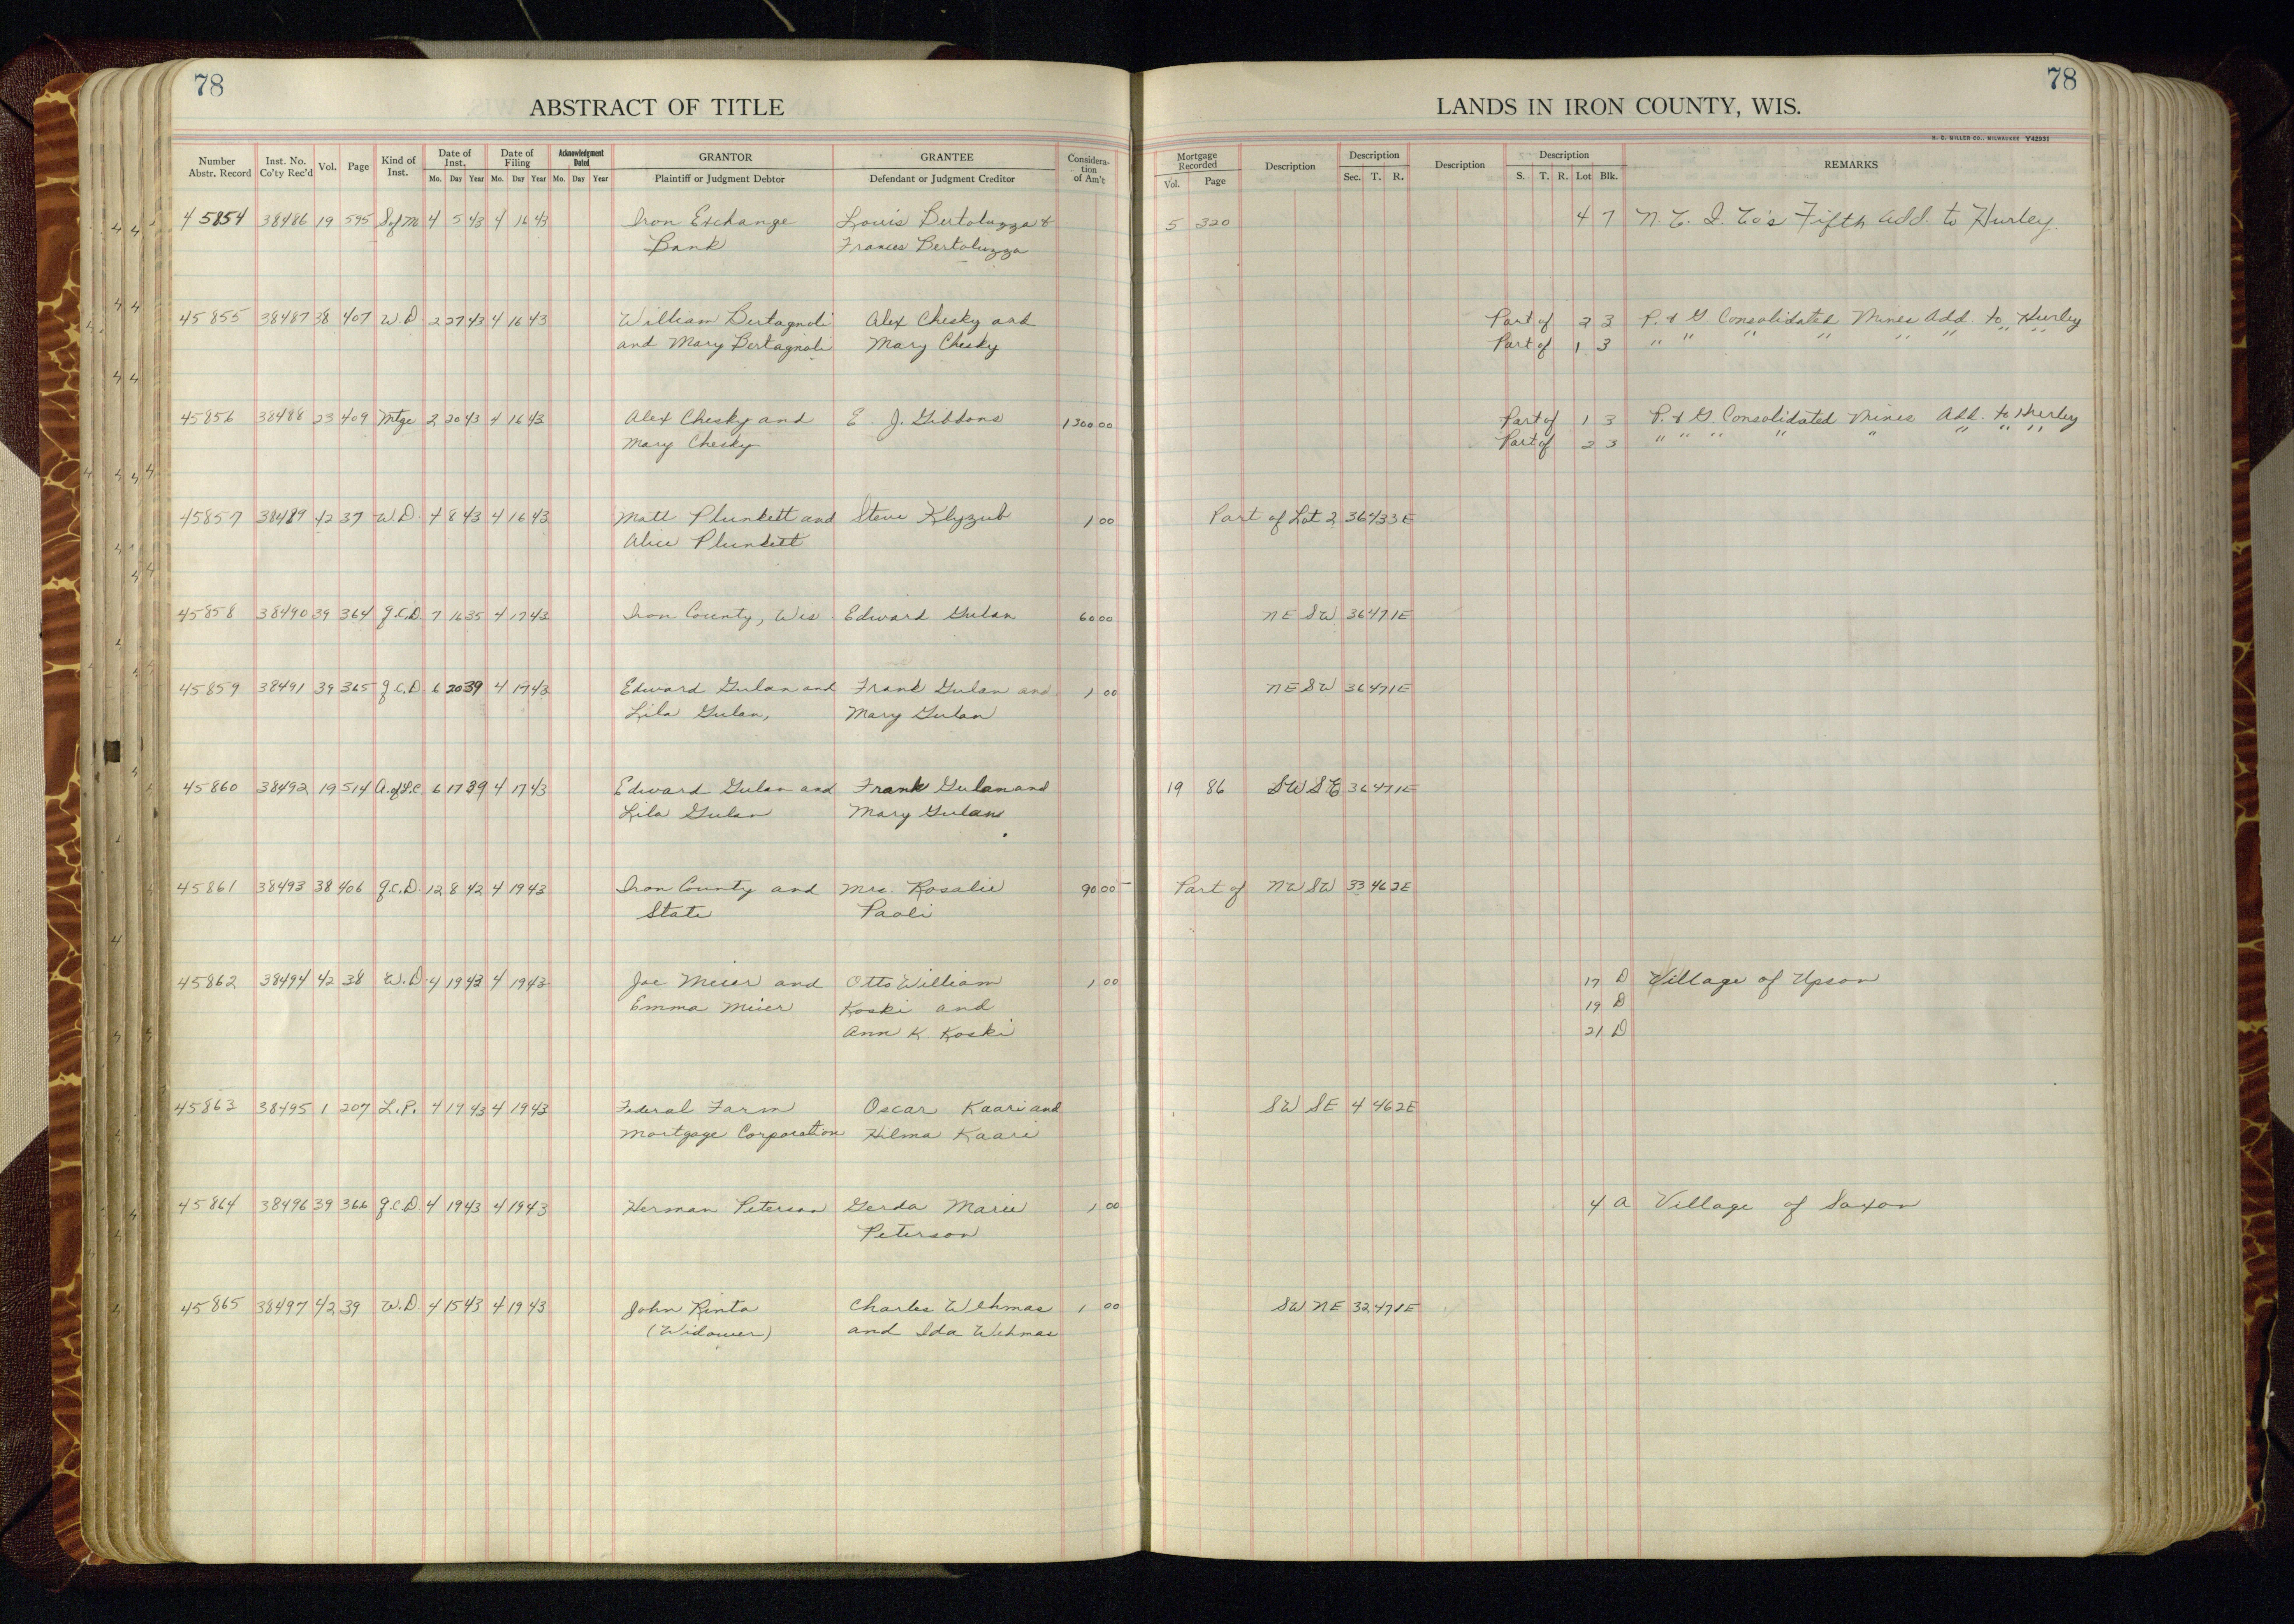 78
ABSTRACT OF TITLE
Number Abstr. Record Inst. No. Co'ty Rec'd Vol. Page Kind of Inst. Date of Inst. Mo. Day Year Date of Filing Mo. Day Year Acknowledgment Dated Mo. Day Year GRANTOR Plaintiff or Judgment Debtor GRANTEE Defendant or Judgment Creditor Considera-tion of Am't
78
LANDS IN IRON COUNTY, WIS.
H. C. MILLER CO., MILWAUKEE Y42931
Mortgage Recorded Vol. Page Description Description Sec. T. R. Description Description S. T. R. Lot Blk. REMARKS
45854 38486 19 595 S of M 4 5 43 4 16 43 Iron Exchange Louis Bertoluzza & 5 320 4 7 N. L. I. Co's Fifth Add. to Hurley.
Bank Frances Bertoluzza
45855 38487 38 407 W.D 2 27 43 4 16 43 William Bertagnoli Alex Chesky and Part of 2 3 P. & G Consolidated Mines Add. to Hurley
and Mary Bertagnoli Mary Chesky Part of 1 3 " " " " " " " "
45856 38488 23 409 Mtge 2 20 43 4 16 43 Alex Chesky and E. J. Gibbons 1300.00 Part of 1 3 P. & G. Consolidated Mines Add. to Hurley
Mary Chesky Part of 2 3 " " " " " " " "
45857 38489 42 37 W.D. 4 8 43 4 16 43 Matt Plunkett and Steve Klyzub 1 00 Part of Lot 2 36 43 3E
Alice Plunkett
45858 38490 39 364 Q.C.D. 7 16 35 4 17 43 Iron County, Wis. Edward Gulan 60 00 NE SW 36 47 1E
45859 38491 39 365 Q.C.D. 6 20 39 4 17 43 Edward Gulan and Frank Gulan and 1 00 NE SW 36 47 1E
Lila Gulan, Mary Gulan
45860 38492 19 514 A. of L.C. 6 17 39 4 17 43 Edward Gulan and Frank Gulan and 19 86 SW SE 36 47 1E
Lila Gulan Mary Gulan
45861 38493 38 406 Q.C.D. 12 8 42 4 19 43 Iron County and Mrs. Rosalie 90 00 Part of NW SW 33 46 2E
State Paoli
45862 38494 42 38 W.D. 4 19 43 4 19 43 Joe Meier and Otto William 1 00 17 D Village of Upson
Emma Meier Koski and 19 D
Ann K Koski 21 D
45863 38495 1 207 L.P. 4 19 43 4 19 43 Federal Farm Oscar Kaari and SW SE 4 46 2E
Mortgage Corporation Hilma Kaari
45864 38496 39 366 Q.C.D. 4 19 43 4 19 43 Herman Peterson Gerda Marie 1 00 4 A Village of Saxon
Peterson
45865 38497 42 39 W.D. 4 15 43 4 19 43 John Rinta Charles Wehmas 1 00 SW NE 32 47 1E
(Widower) and Ida Wehmas